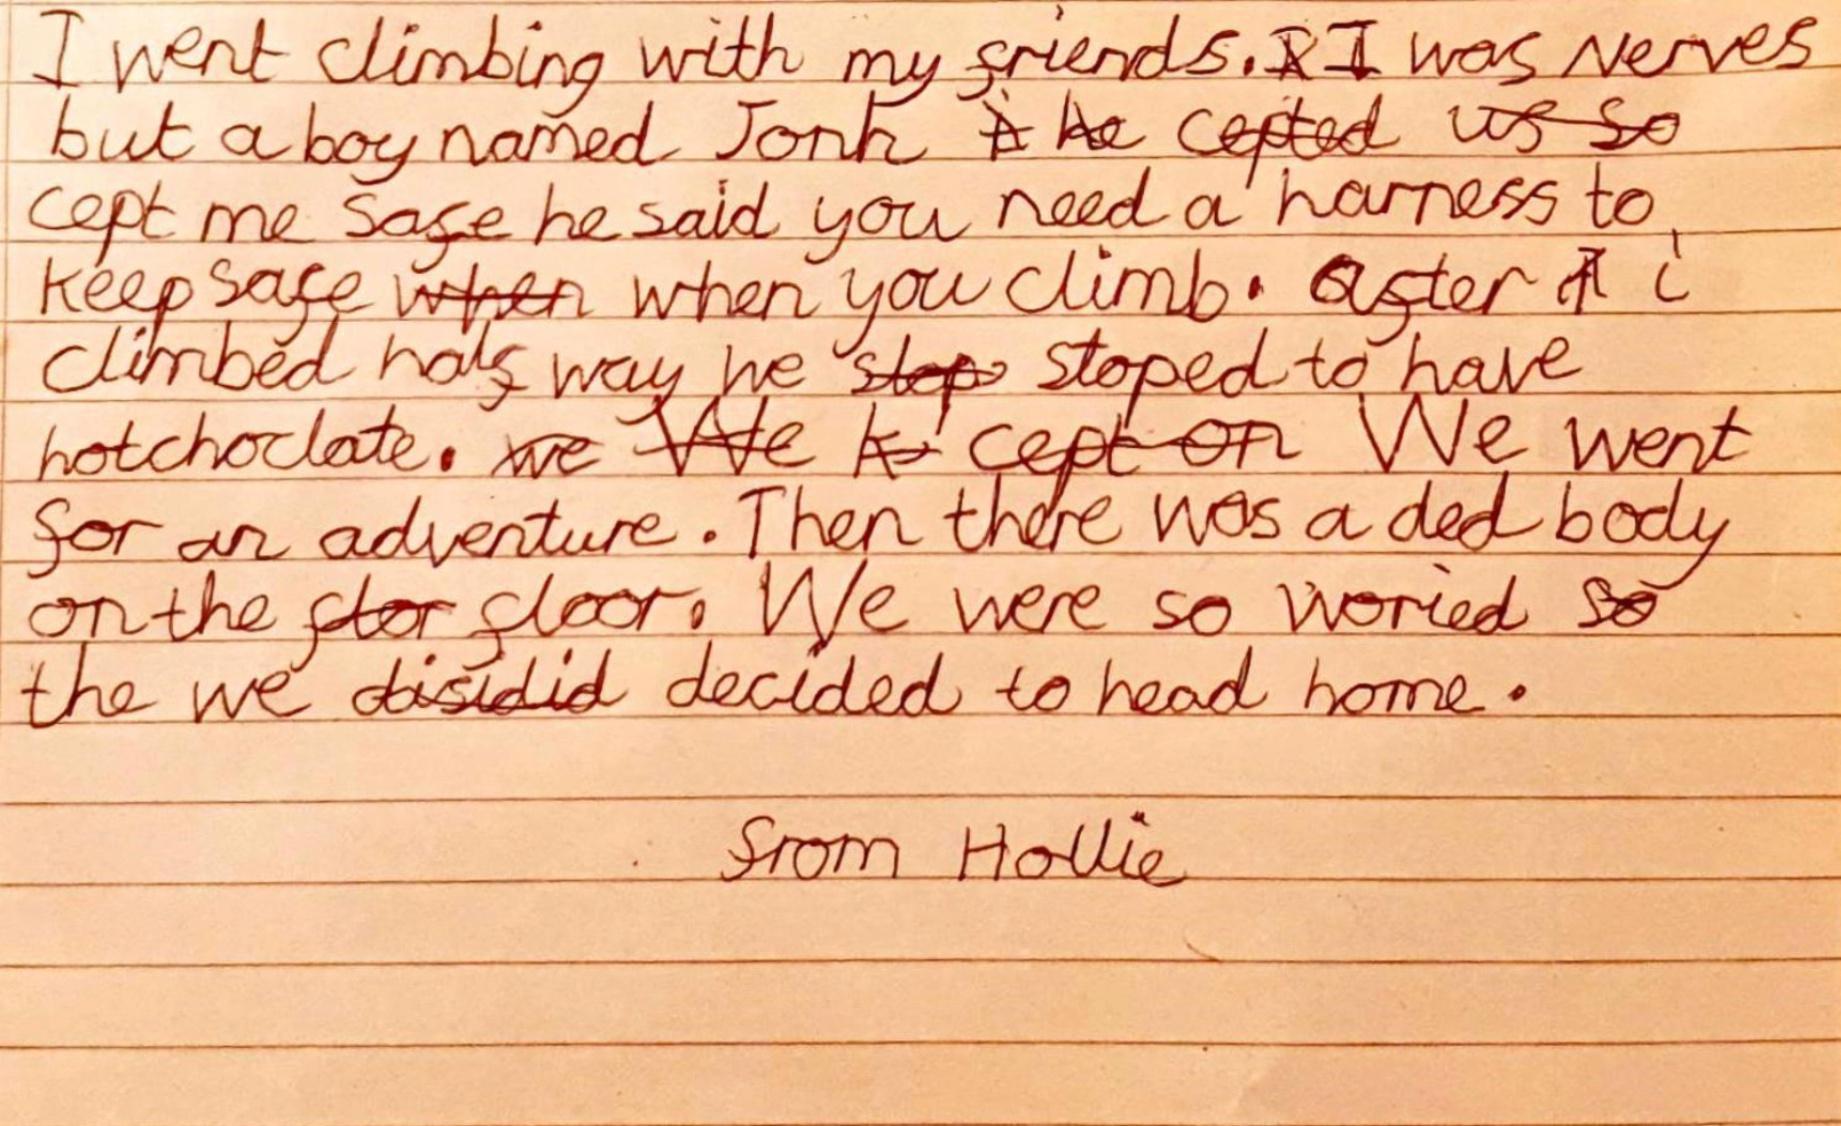 I went climbing with my friends. I I was Nerves
but a boy named Jonh he cepted us so
cept me safe he said you need a harness to
keep safe when when you climb. after i
climbed half way we stop stoped to have
hotchoclate. we We k cept on We went
for an adventure. Then there was a ded body
on the flor floor. We were so woried so
the we disidid decided to head home.
from Hollie